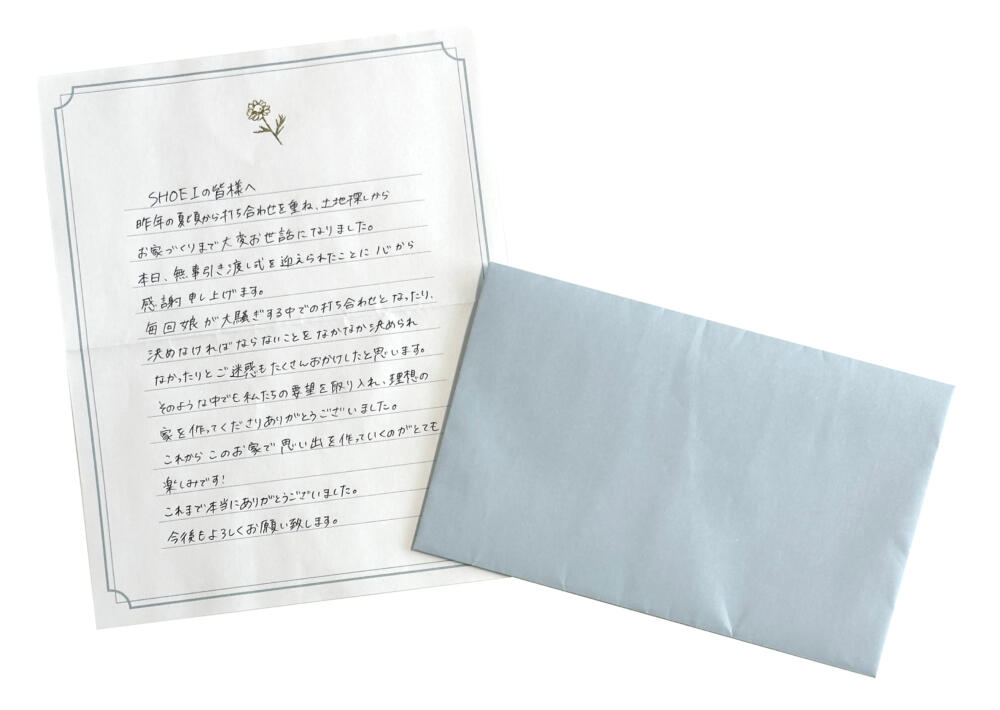 SHOEIの皆様へ
昨年の夏頃から打ち合わせを重ね、土地探しから
お家づくりまで大変お世話になりました。
本日、無事引き渡し式を迎えられたことに心から
感謝申し上げます。
毎回娘が大騒ぎする中での打ち合わせとなったり、
決めなければならないことをなかなか決められ
なかったりとご迷惑もたくさんおかけしたと思います。
そのような中でも私たちの要望を取り入れ、理想の
家を作ってくださりありがとうございました。
これからこのお家で思い出を作っていくのがとても
楽しみです!
これまで本当にありがとうございました。
今後もよろしくお願い致します。